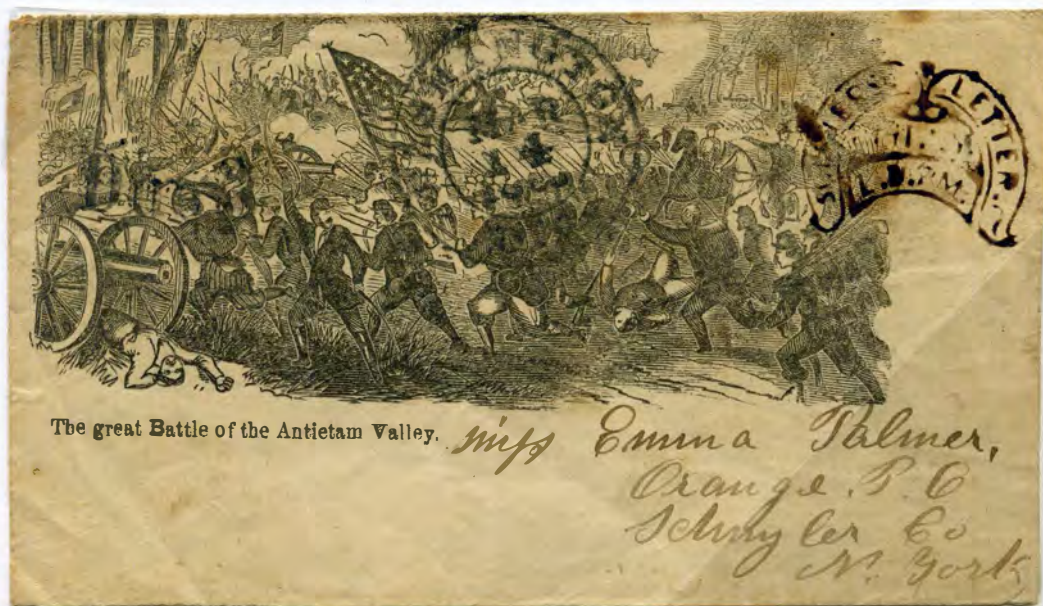 LETTER
The great Battle of the Antietam Valley.
Miss Emma Palmer,
Orange. P. O
Schuyler Co
N. York